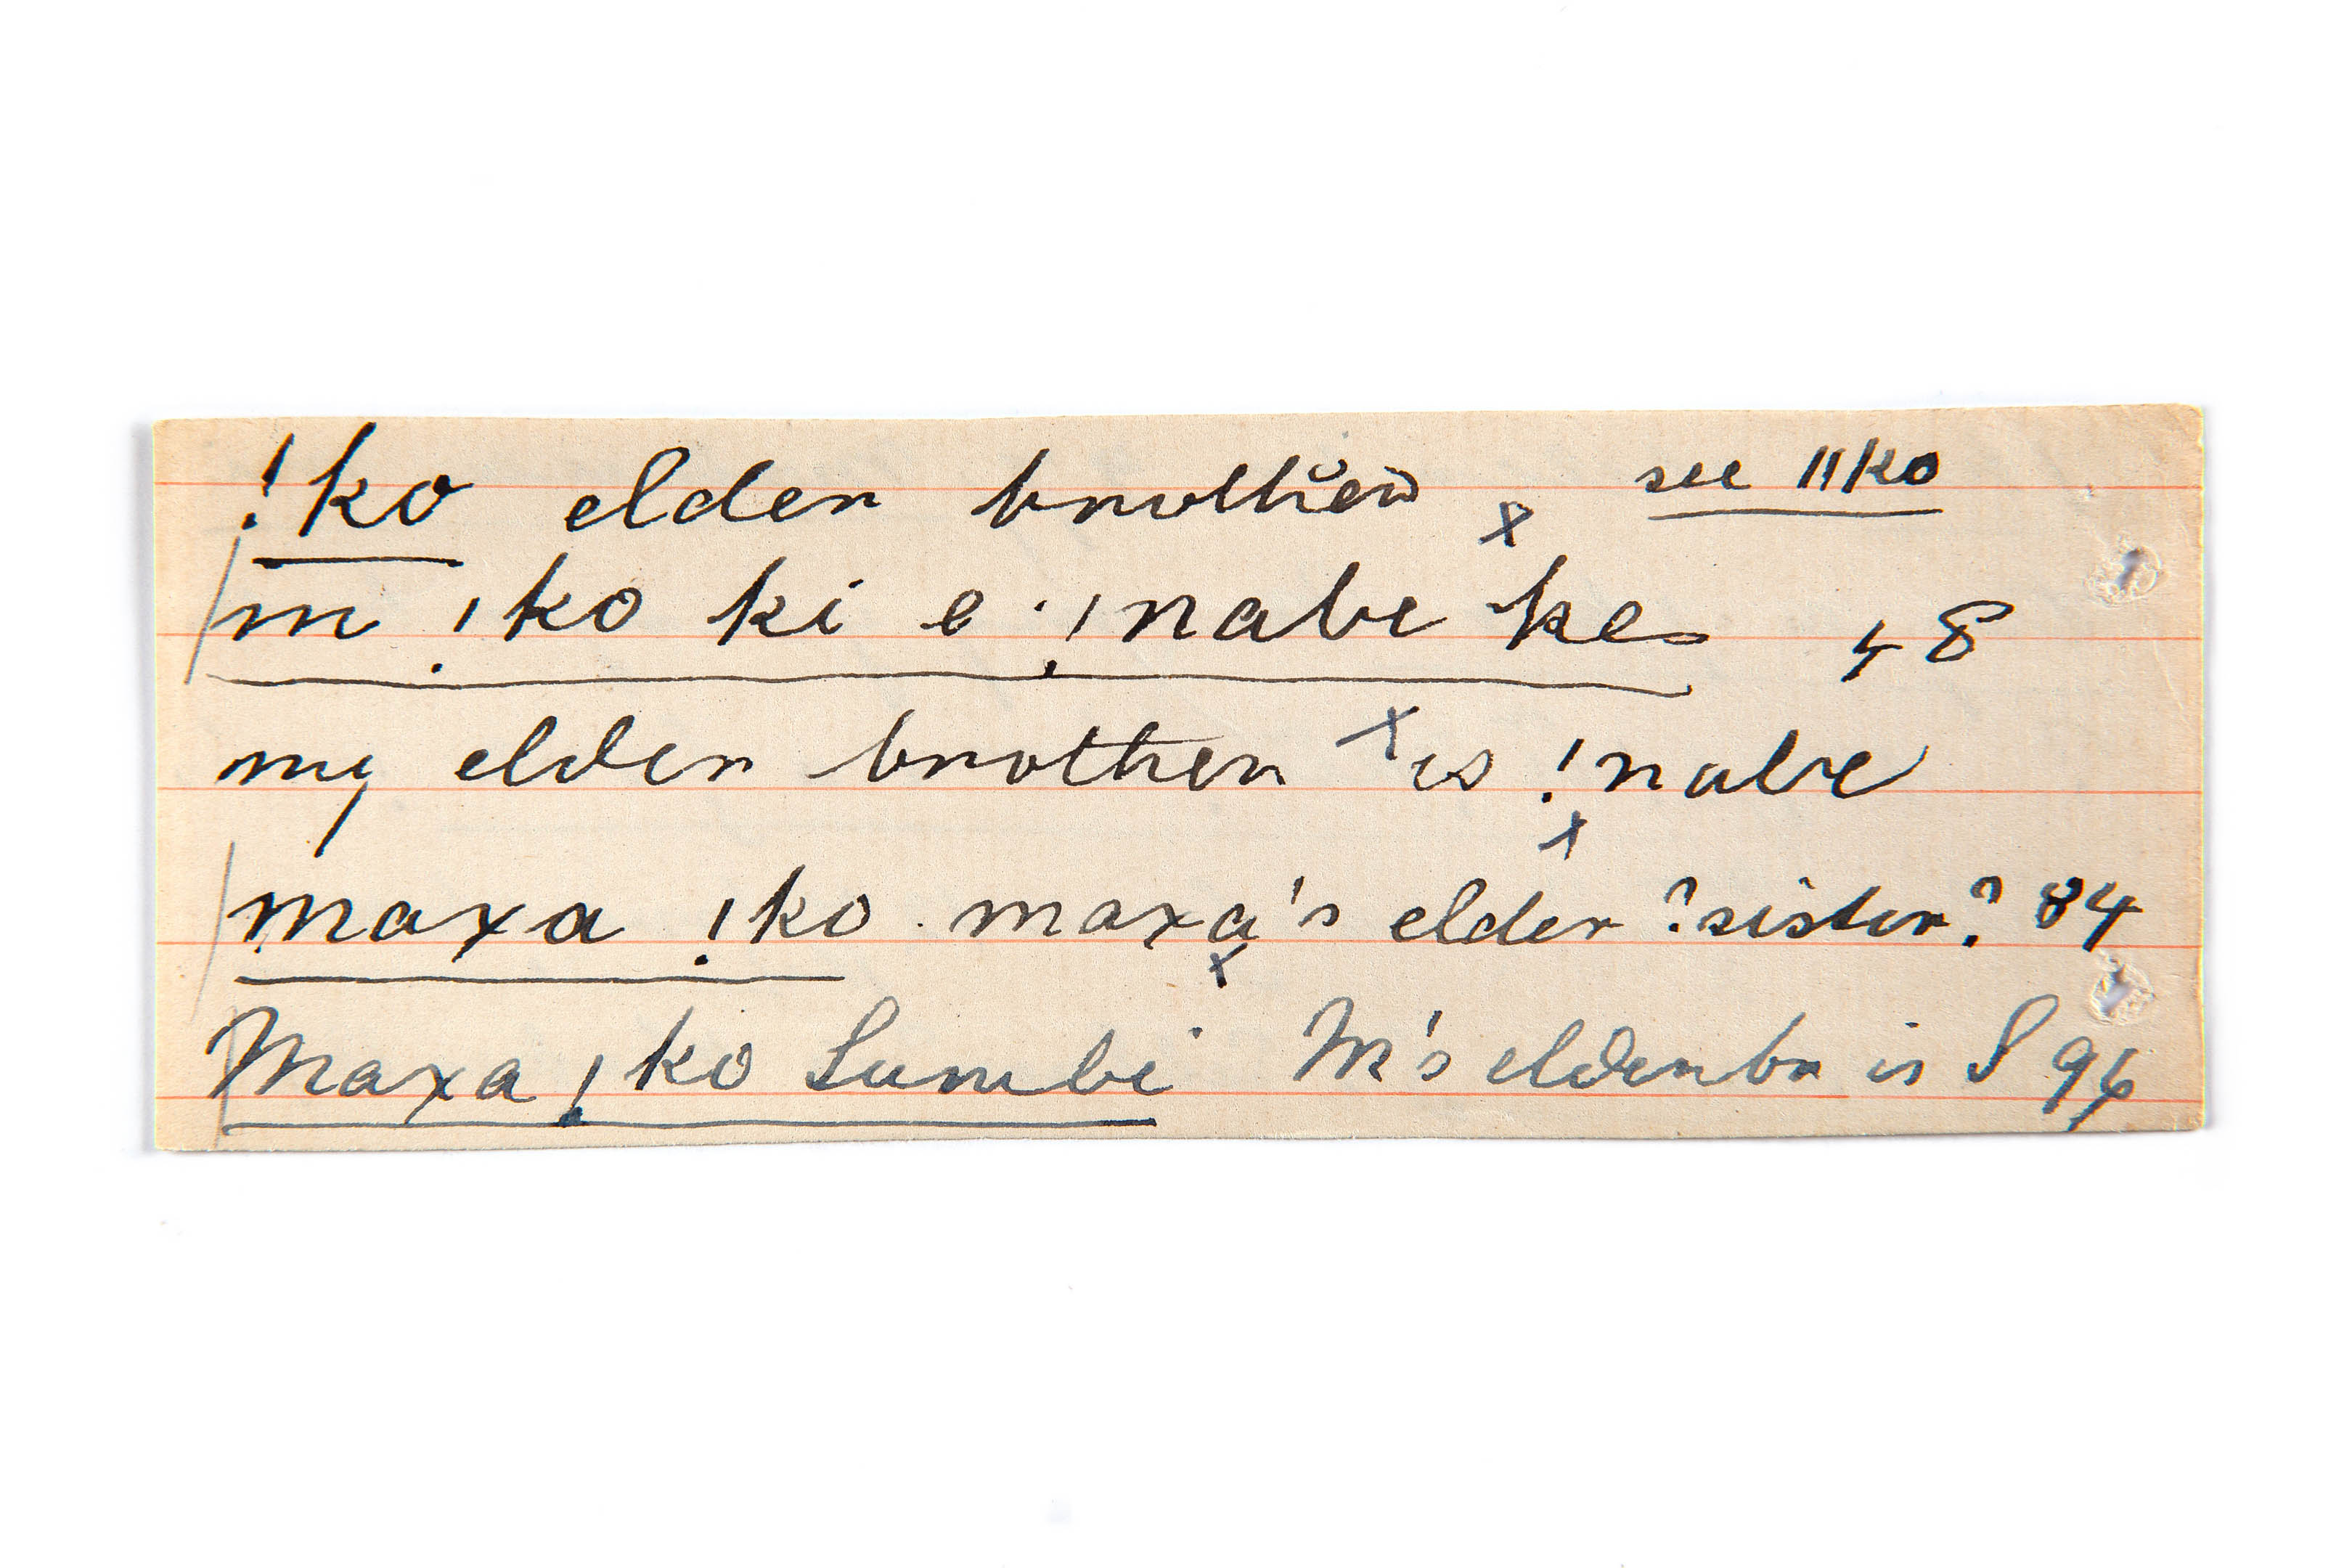 !ko elder brother x see ||ko
m !ko ki e !nabe ke 48
my elder brother x is !nabe
x
maxa !ko maxa's elder ?sister? 84
x
Maxa !ko Sumbi M's elder br is S 96